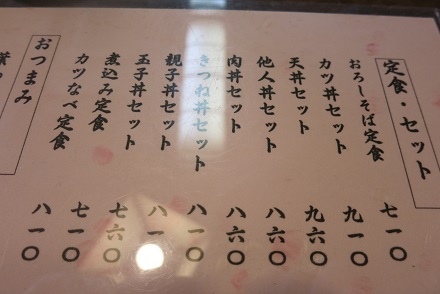 定食・セット
おろしそば定食 七一〇
カツ丼セット 九一〇
天丼セット 九六〇
他人丼セット 八六〇
肉丼セット 八六〇
きつね丼セット 八一〇
親子丼セット 八一〇
玉子丼セット 七六〇
煮込み定食 七一〇
カツなべ定食 八一〇
おつまみ